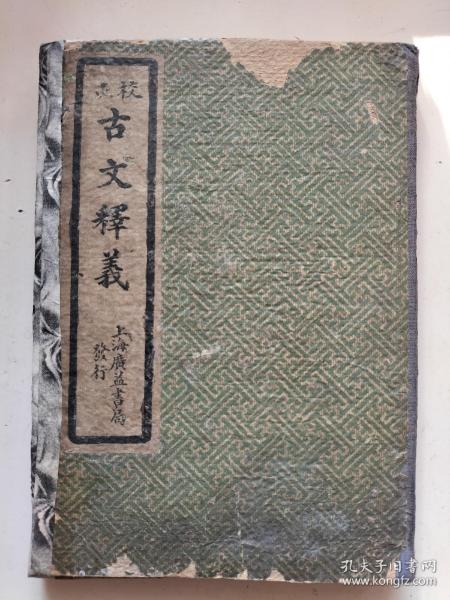 校正
古文釋義
上海廣益書局
發行
孔夫子旧书网
www.kongfz.com